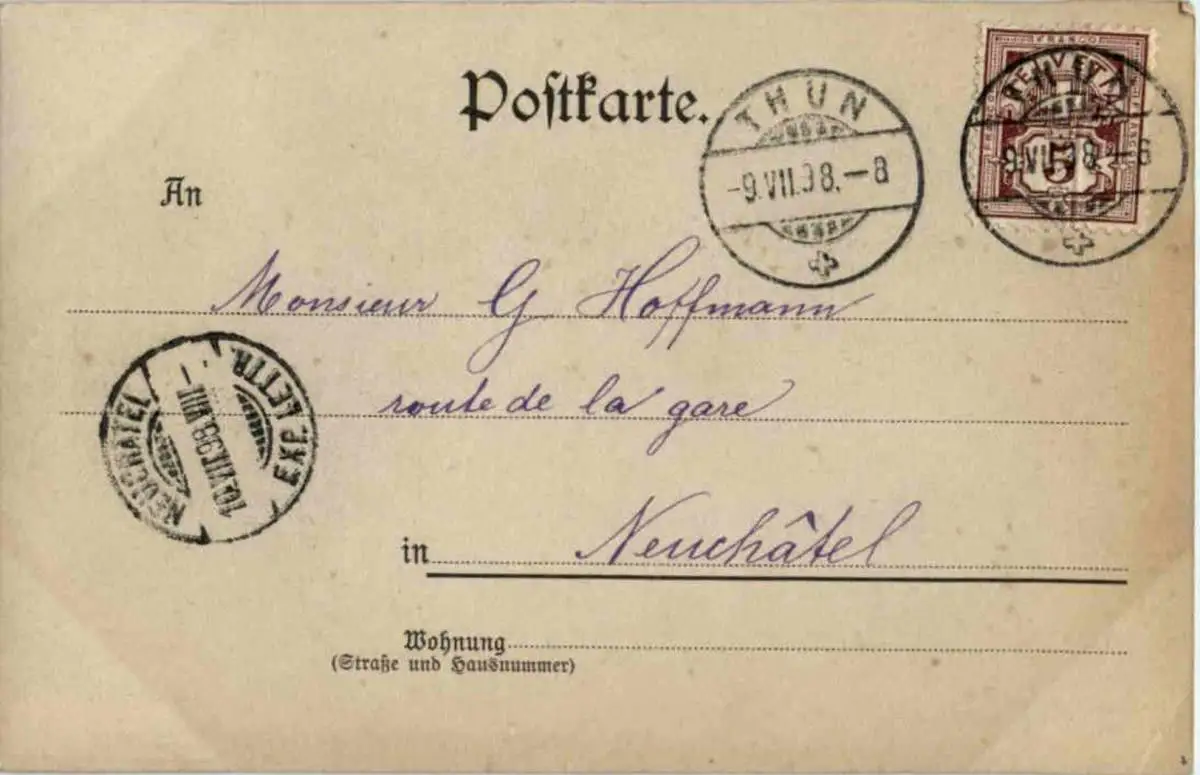 Postkarte.
THUN
-9.VII.98.-8
FRANCO
HELVETIA
5
9.VII.98.-8
An
Monsieur G Hoffmann
route de la gare
NEUCHATEL
10.VII.98.VIII-
EXP. LETTR.
in Neuchâtel
Wohnung
(Straße und Hausnummer)